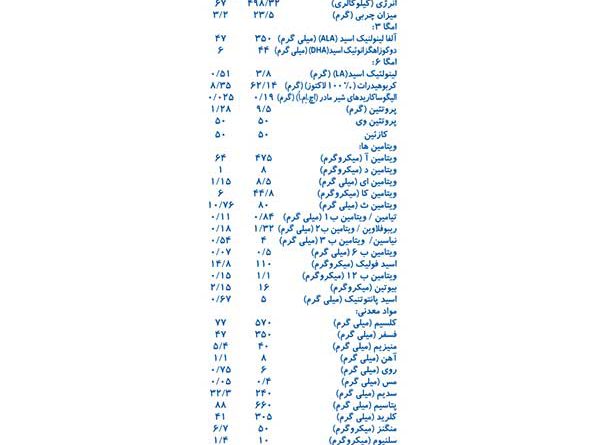 انرژی (کیلوکالری) ۴۹۸/۳۲ ۶۷
میزان چربی (گرم) ۲۳/۵ ۳/۲
امگا ۳:
آلفا لینولنیک اسید (ALA) (میلی گرم) ۳۵۰ ۴۷
دوکوزاهگزانوئیک اسید(DHA) (میلی گرم) ۴۴ ۶
امگا ۶:
لینولئیک اسید(LA) (گرم) ۳/۸ ۰/۵۱
کربوهیدرات (۱۰۰٪ لاکتوز) (گرم) ۶۲/۱۴ ۸/۳۵
الیگوساکاریدهای شیر مادر (اچ.ام.اُ) (گرم) ۰/۱۹ ۰/۰۲۵
پروتئین (گرم) ۹/۵ ۱/۲۸
پروتئین وی ۵۰ ۵۰
کازئین ۵۰ ۵۰
ویتامین ها:
ویتامین آ (میکروگرم) ۴۷۵ ۶۴
ویتامین د (میکروگرم) ۸ ۱
ویتامین ای (میلی گرم) ۸/۵ ۱/۱۵
ویتامین کا (میکروگرم) ۴۴/۸ ۶
ویتامین ث (میلی گرم) ۸۰ ۱۰/۷۶
تیامین / ویتامین ب۱ (میلی گرم) ۰/۸۴ ۰/۱۱
ریبوفلاوین / ویتامین ب۲ (میلی گرم) ۱/۳۲ ۰/۱۸
نیاسین/ ویتامین ب ۳ (میلی گرم) ۴ ۰/۵۴
ویتامین ب ۶ (میلی گرم) ۰/۵ ۰/۰۷
اسید فولیک (میکروگرم) ۱۱۰ ۱۴/۸
ویتامین ب ۱۲ (میکروگرم) ۱/۱ ۰/۱۵
بیوتین (میکروگرم) ۱۶ ۲/۱۵
اسید پانتوتنیک (میلی گرم) ۵ ۰/۶۷
مواد معدنی:
کلسیم (میلی گرم) ۵۷۰ ۷۷
فسفر (میلی گرم) ۳۵۰ ۴۷
منیزیم (میلی گرم) ۴۰ ۵/۴
آهن (میلی گرم) ۸ ۱/۱
روی (میلی گرم) ۶ ۰/۷۵
مس (میلی گرم) ۰/۴ ۰/۰۵
سدیم (میلی گرم) ۲۴۰ ۳۲/۳
پتاسیم (میلی گرم) ۶۶۰ ۸۸
کلرید (میلی گرم) ۳۰۵ ۴۱
منگنز (میکروگرم) ۵۰ ۶/۷
سلنیوم (میکروگرم) ۱۰ ۱/۴